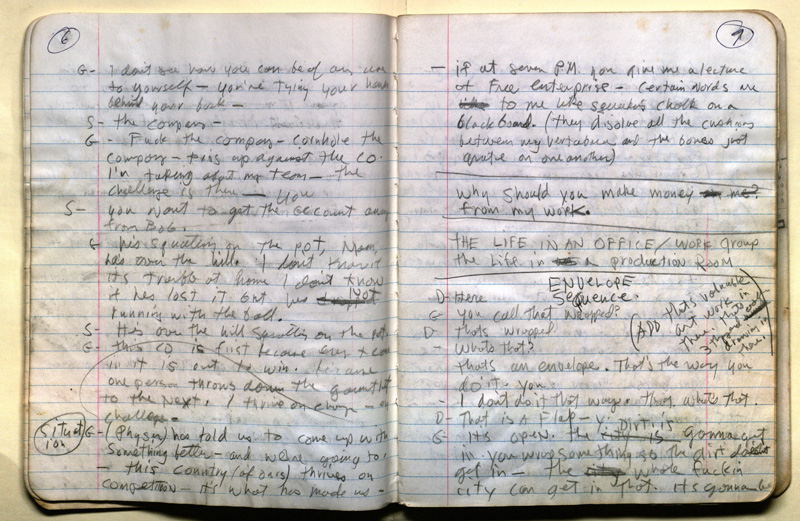 6
G- I don't see how you can be of any use
to yourself - you're tying your hands
behind your back -
S - the company -
G - Fuck the company - Cornhole the
company - this up against the CO.
I'm talking about my team - the
challenge is there - you
S - you want to get the account away
from Bob.
G his squatting on the pot, Man,
has over the hill. I don't know if
its trouble at home I don't know
if has lost it but has not
running with the ball.
S - Has over the hill squatting on the pot.
G - this CO is first because every
in it is out to win. because
one person throws down the gauntlet
to the next. I thrive on
challenge -
Situation
G- (Physin) has told us to come up with
something better - and we're going to.
- this country (of ours) thrives on
competition - it's what has made us -
9
- if at seven P.M. you give me a lecture
of Free Enterprise - certain words are
to me like squeaking chalk on a
blackboard. (they disolve all the cushions
between my vertabrae and the bones just
grate on one another)
why should you make money
from my work.
THE LIFE IN AN OFFICE / WORK group
the Life in a production Room
ENVELOPE
Sequence.
D- Here
G you call that wrapped?
D- thats wrapped
- Whats that?
thats an envelope. That's the way you
do it. you.
- I dont do it that way. thay, whats that.
D- That is a Flap - y.
G- its open. the dirt is gonna get
in. you wrap something so the dirt doesnt
get in - the whole fuckin
city can get in that. its gonna be
(ADD thats valuable
art work in
there. thats